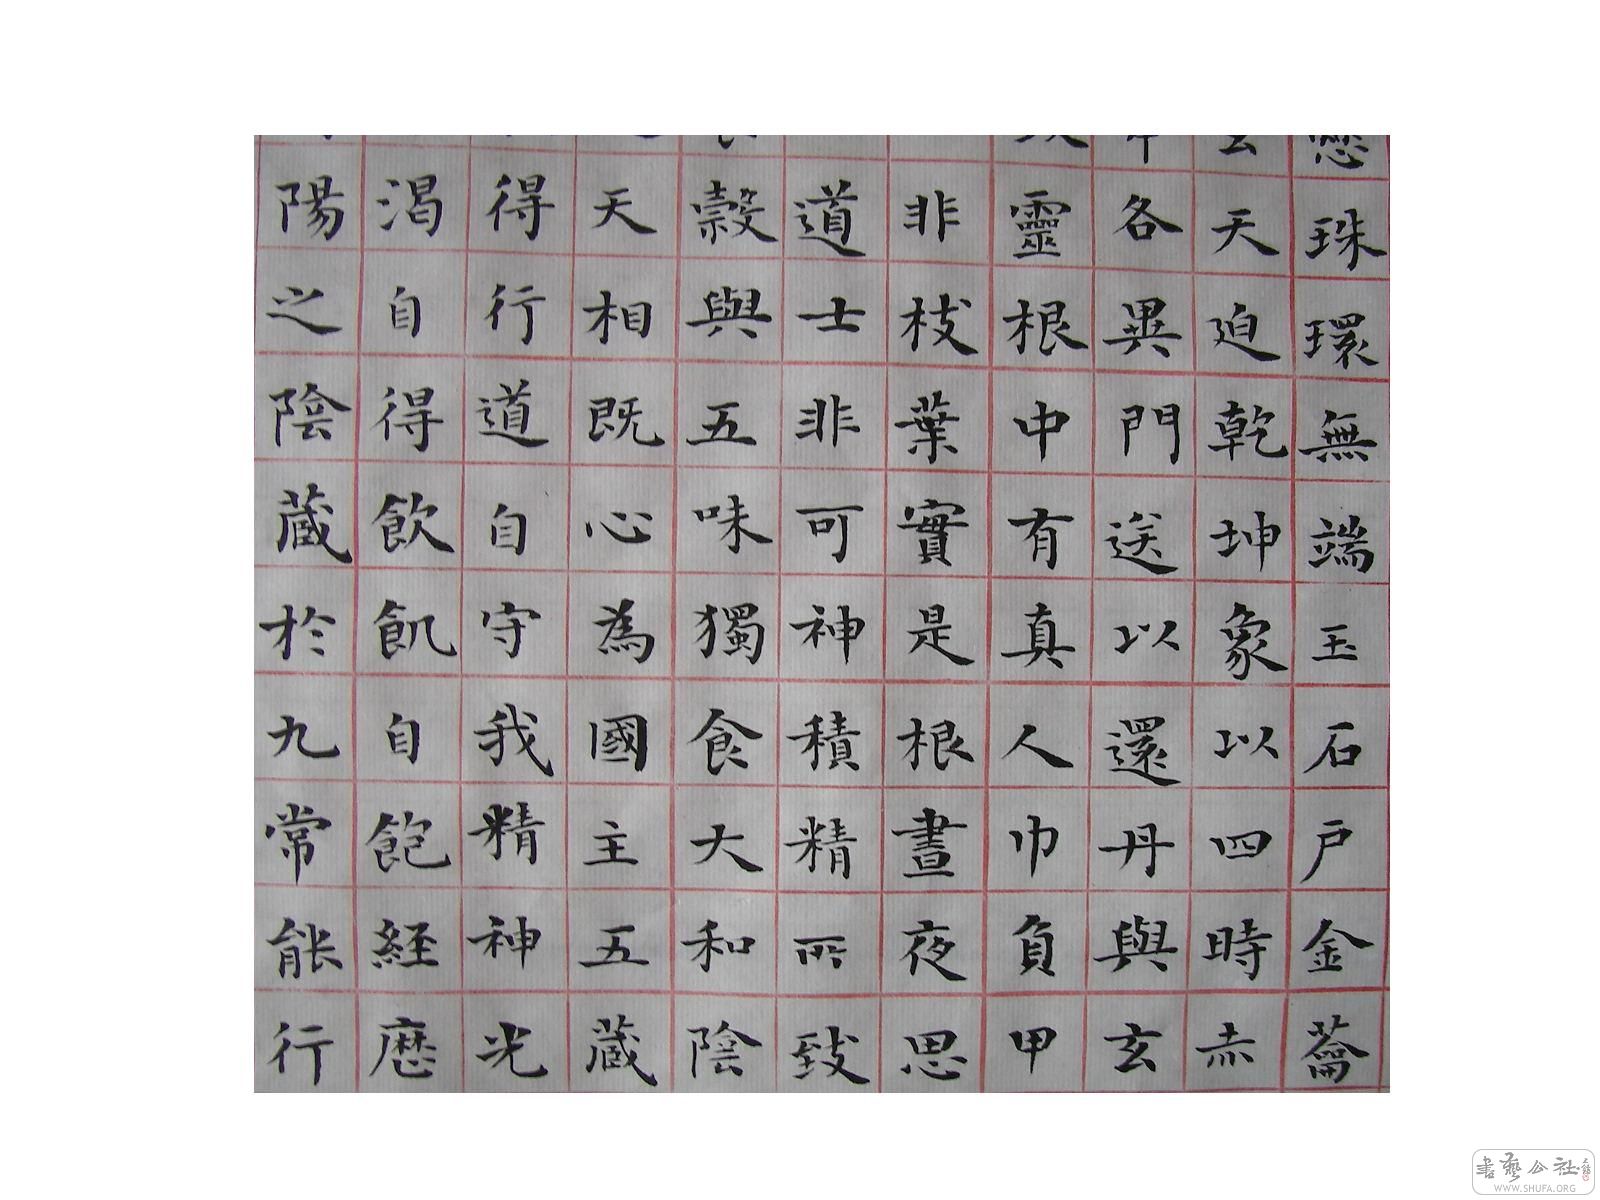 珠環無端玉石戶金蘥
天迫乾坤象以四時赤
各異門送以還丹與玄
靈根中有真人巾負甲
非枝葉實是根晝夜思
道士非可神積精所致
穀與五味獨食大和陰
天相既心為國主五藏
得行道自守我精神光
渴自得飲飢自飽經歷
陽之陰藏於九常能行
書藝公社
WWW.SHUFA.ORG